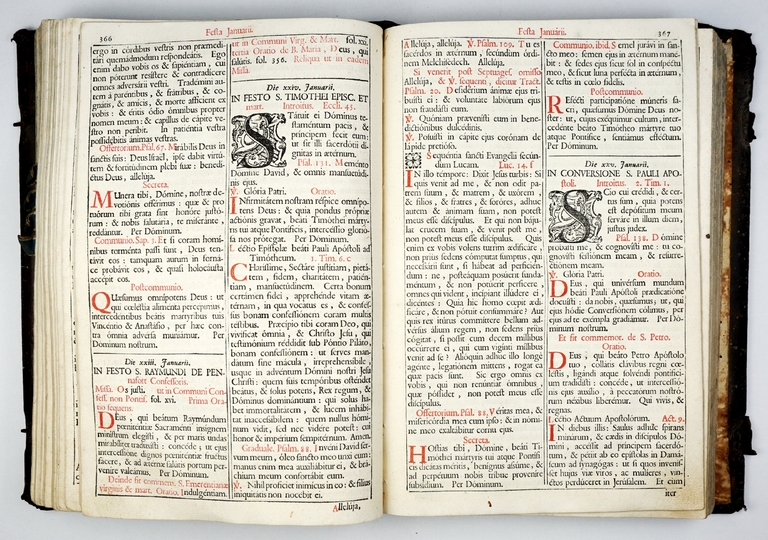 366
Festa Januarii.
ergo in córdibus vestris non præmedi-
tári quemádmodum respondeátis. Ego
enim dabo vobis os & sapiéntiam, cui
non póterunt resístere & contradícere
omnes adversárii vestri. Tradémini au-
tem à paréntibus, & frátribus, & co-
gnátis, & amícis, & morte affícient ex
vobis: & éritis ódio ómnibus propter
nomen meum: & capíllus de cápite ve-
stro non períbit. In patiéntia vestra
possidébitis ánimas vestras.
Offertorium. Psal. 67. Mirábilis Deus in
sanctis suis: Deus Israël, ipse dabit virtú-
tem & fortitúdinem plebi suæ: bene-
díctus Deus, allelúja.
Secreta.
MUnera tibi, Dómine, nostræ de-
votiónis offérimus: quæ & pro
tuórum tibi grata sint honóre justó-
rum: & nobis salutária, te miseránte,
reddántur. Per Dóminum.
Communio. Sap. 3. Et si coram homí-
nibus torménta passi sunt, Deus ten-
távit eos: tamquam aurum in forná-
ce probávit eos, & quasi holocáusta
accépit eos.
Postcommunio.
QUæsumus omnípotens Deus: ut
qui cœléstia aliménta percépimus,
intercedéntibus beátis martyribus tuis
Vincéntio & Anastásio, per hæc con-
tra ómnia advérsa muniámur. Per
Dóminum nostrum.
Die xxiii. Januarii.
IN FESTO S. RAYMUNDI DE PEN-
nafort Confessoris.
Missa. Os justi. ut in Communi Con-
fess. non Pontif. fol. xvi. Prima Ora-
tio sequens.
DEus, qui beátum Raymúndum
pœniténtiæ Sacraménti insígnem
minístrum elegísti, & per maris undas
mirabíliter traduxísti: concéde; ut ejus
intercessióne dignos pœniténtiæ fructus
fácere, & ad ætérnæ salútis portum per-
veníre valeámus. Per Dóminum.
Deinde fit commem. S. Emerentianæ
virginis & mart. Oratio. Indulgéntiam.
ut in Communi Virg. & Mart. fol. xxi.
tertia Oratio de B. Maria, Deus, qui
salútis. fol. 356. Reliqua ut in eadem
Missa.
Die xxiv. Januarii.
IN FESTO S. TIMOTHEI EPISC. ET
mart. Introitus. Eccli. 45.
STátuit ei Dóminus te-
staméntum pacis, &
príncipem fecit eum:
ut sit illi sacerdótii di-
gnitas in ætérnum.
Psal. 131. Meménto
Dómine David, & omnis mansuetúdi-
nis ejus.
℣. Glória Patri. Oratio.
INfirmitátem nostram réspice omnípo-
tens Deus: & quia pondus própriæ
actiónis gravat, beáti Timóthei márty-
ris tui atque Pontíficis, intercéssio glorió-
sa nos prótegat. Per Dóminum.
Léctio Epístolæ beáti Pauli Apóstoli ad
Timótheum. 1. Tim. 6. c
CHaríssime, Sectáre justítiam, pietá-
tem, fidem, charitátem, patién-
tiam, mansuetúdinem. Certa bonum
certámen fídei, apprehénde vitam æ-
térnam, in qua vocátus es, & confés-
sus bonam confessiónem coram multis
téstibus. Præcípio tibi coram Deo, qui
vivíficat ómnia, & Christo Jesu, qui
testimónium réddidit sub Póntio Piláto,
bonam confessiónem: ut serves man-
dátum sine mácula, irreprehensíbile,
usque in advéntum Dómini nostri Jesu
Christi: quem suis tempóribus osténdet
beátus, & solus potens, Rex regum, &
Dóminus dominántium: qui solus ha-
bet immortalitátem, & lucem inhábi-
tat inaccessíbilem: quem nullus hómi-
num vidit, sed nec vidére potest: cui
honor & impérium sempitérnum. Amen.
Graduale. Psalm. 88. Invéni David ser-
vum meum, óleo sancto meo unxi eum:
manus enim mea auxiliábitur ei, & brá-
chium meum confortábit eum.
℣. Nihil profíciet inimícus in eo: & fílius
iniquitátis non nocébit ei.
Allelúja,
Festa Januarii.
367
Allelúja, allelúja. ℣. Psalm. 109. Tu es
sacérdos in ætérnum, secúndum órdi-
nem Melchísedech. Allelúja.
Si venerit post Septuages. omisso
Allelúja, & ℣. sequenti, dicitur Tract.
Psalm. 20. Desidérium ánimæ ejus tri-
buísti ei: & voluntáte labiórum ejus
non fraudásti eum.
℣. Quóniam prævenísti eum in bene-
dictiónibus dulcédinis.
℣. Posuísti in cápite ejus corónam de
lápide pretióso.
Sequéntia sancti Evangélii secún-
dum Lucam. Luc. 14. f
IN illo témpore: Dixit Jesus turbis: Si
quis venit ad me, & non odit pa-
trem suum, & matrem, & uxórem,
& fílios, & fratres, & soróres, adhuc
autem & ánimam suam, non potest
meus esse discípulus. Et qui non báju-
lat crucem suam, & venit post me,
non potest meus esse discípulus. Quis
enim ex vobis volens turrim ædificáre,
non prius sedens cómputat sumptus, qui
necessárii sunt, si hábeat ad perficién-
dum: ne, posteáquam posúerit funda-
méntum, & non potúerit perfícere,
omnes qui vident, incípiant illúdere ei,
dicéntes: Quia hic homo cœpit ædi-
ficáre, & non pótuit consummáre? Aut
quis rex itúrus commíttere bellum ad-
vérsus álium regem, non sedens prius
cógitat, si possit cum decem míllibus
occúrrere ei, qui cum vigínti míllibus
venit ad se? Alióquin adhuc illo longè
agénte, legatiónem mittens, rogat ea
quæ pacis sunt. Sic ergo omnis ex
vobis, qui non renúntiat ómnibus,
quæ póssidet, non potest meus esse
discípulus.
Offertorium. Psal. 88. Véritas mea, &
misericórdia mea cum ipso: & in nómi-
ne meo exaltábitur cornu ejus.
Secreta.
HOstias tibi, Dómine, beáti Ti-
móthei mártyris tui atque Pontífi-
cis dicátas méritis, benígnus assúme, &
ad perpétuum nobis tríbue proveníre
subsídium. Per Dóminum.
Communio. ibid. Semel jurávi in san-
cto meo: semen ejus in ætérnum mané-
bit: & sedes ejus sicut sol in conspéctu
meo, & sicut luna perfécta in ætérnum,
& testis in cœlo fidélis.
Postcommunio.
REfécti participatióne múneris sa-
cri, quǽsumus Dómine Deus no-
ster: ut, cujus exéquimur cultum, inter-
cedénte beáto Timótheo mártyre tuo
atque Pontífice, sentiámus efféctum.
Per Dóminum.
Die xxv. Januarii.
IN CONVERSIONE S. PAULI APO-
stoli. Introitus. 2. Tim. 1.
SCio cui crédidi, & cer-
tus sum, quia potens
est depósitum meum
serváre in illum diem,
justus judex.
Psal. 138. Dómine
probásti me, & cognovísti me: tu co-
gnovísti sessiónem meam, & resurre-
ctiónem meam.
℣. Glória Patri. Oratio.
DEus, qui univérsum mundum
beáti Pauli Apóstoli prædicatióne
docuísti: da nobis, quǽsumus; ut, qui
ejus hódie Conversiónem cólimus, per
ejus ad te exémpla gradiámur. Per Dó-
minum nostrum.
Et fit commemor. de S. Petro.
Oratio.
DEus, qui beáto Petro Apóstolo
tuo, collátis clávibus regni cœ-
léstis, ligándi atque solvéndi pontifíci-
um tradidísti: concéde, ut intercessió-
nis ejus auxílio, à peccatórum nostró-
rum néxibus liberémur. Qui vivis, &
regnas.
Léctio Actuum Apostolórum. Act. 9.
IN diébus illis: Saulus adhuc spirans
minárum, & cædis in discípulos Dó-
mini, accéssit ad príncipem sacerdó-
tum, & pétiit ab eo epístolas in Damá-
scum ad synagógas: ut si quos invenís-
set hujus viæ viros, ac mulíeres, vin-
ctos perdúceret in Jerúsalem. Et cum
iter